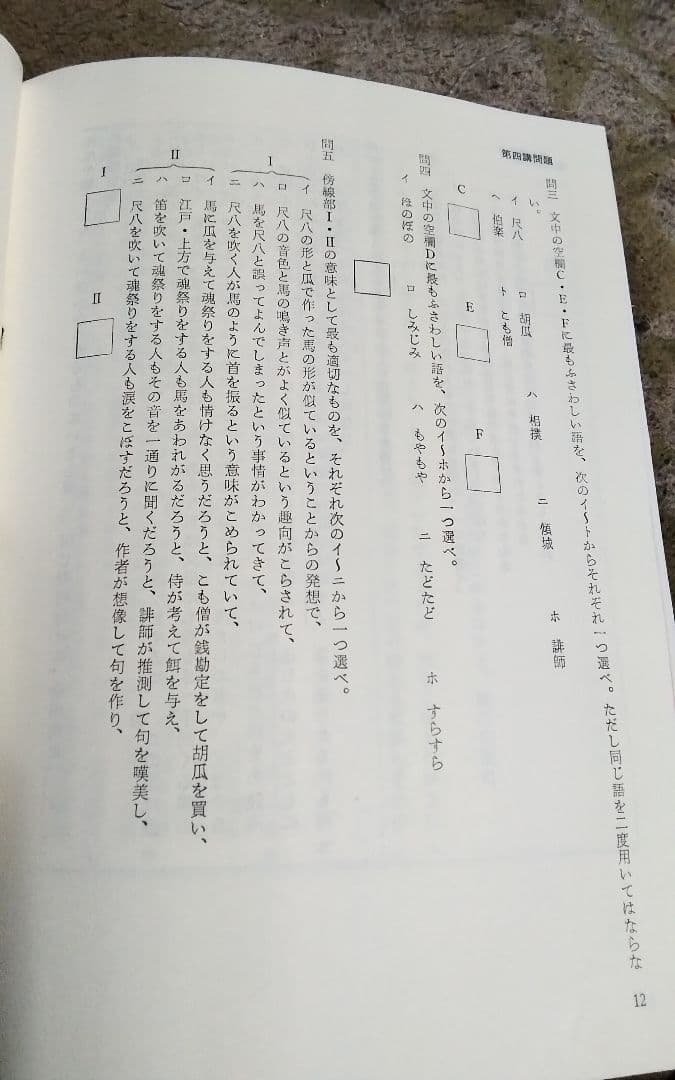 第四講問題
問三　文中の空欄C・E・Fに最もふさわしい語を、次のイ～トからそれぞれ一つ選べ。ただし同じ語を二度用いてはならな
い。
イ　尺八　ロ　胡瓜　ハ　相撲　ニ　傾城　ホ　誹師
ヘ　伯楽　ト　こも僧
C　E　F
問四　文中の空欄Dに最もふさわしい語を、次のイ～ホから一つ選べ。
イ　ほのぼの　ロ　しみじみ　ハ　もやもや　ニ　たどたど　ホ　すらすら
問五　傍線部Ⅰ・Ⅱの意味として最も適切なものを、それぞれ次のイ～ニから一つ選べ。
Ⅰ
イ　尺八の形と瓜で作った馬の形が似ているということからの発想で、
ロ　尺八の音色と馬の鳴き声とがよく似ているという趣向がこらされて、
ハ　馬を尺八と誤ってよんでしまったという事情がわかってきて、
ニ　尺八を吹く人が馬のように首を振るという意味がこめられていて、
Ⅱ
イ　馬に瓜を与えて魂祭りをする人も情けなく思うだろうと、こも僧が銭勘定をして胡瓜を買い、
ロ　江戸・上方で魂祭りをする人も馬をあわれがるだろうと、侍が考えて餌を与え、
ハ　笛を吹いて魂祭りをする人もその音を一通りに聞くだろうと、誹師が推測して句を嘆美し、
ニ　尺八を吹いて魂祭りをする人も涙をこぼすだろうと、作者が想像して句を作り、
Ⅰ　Ⅱ
12